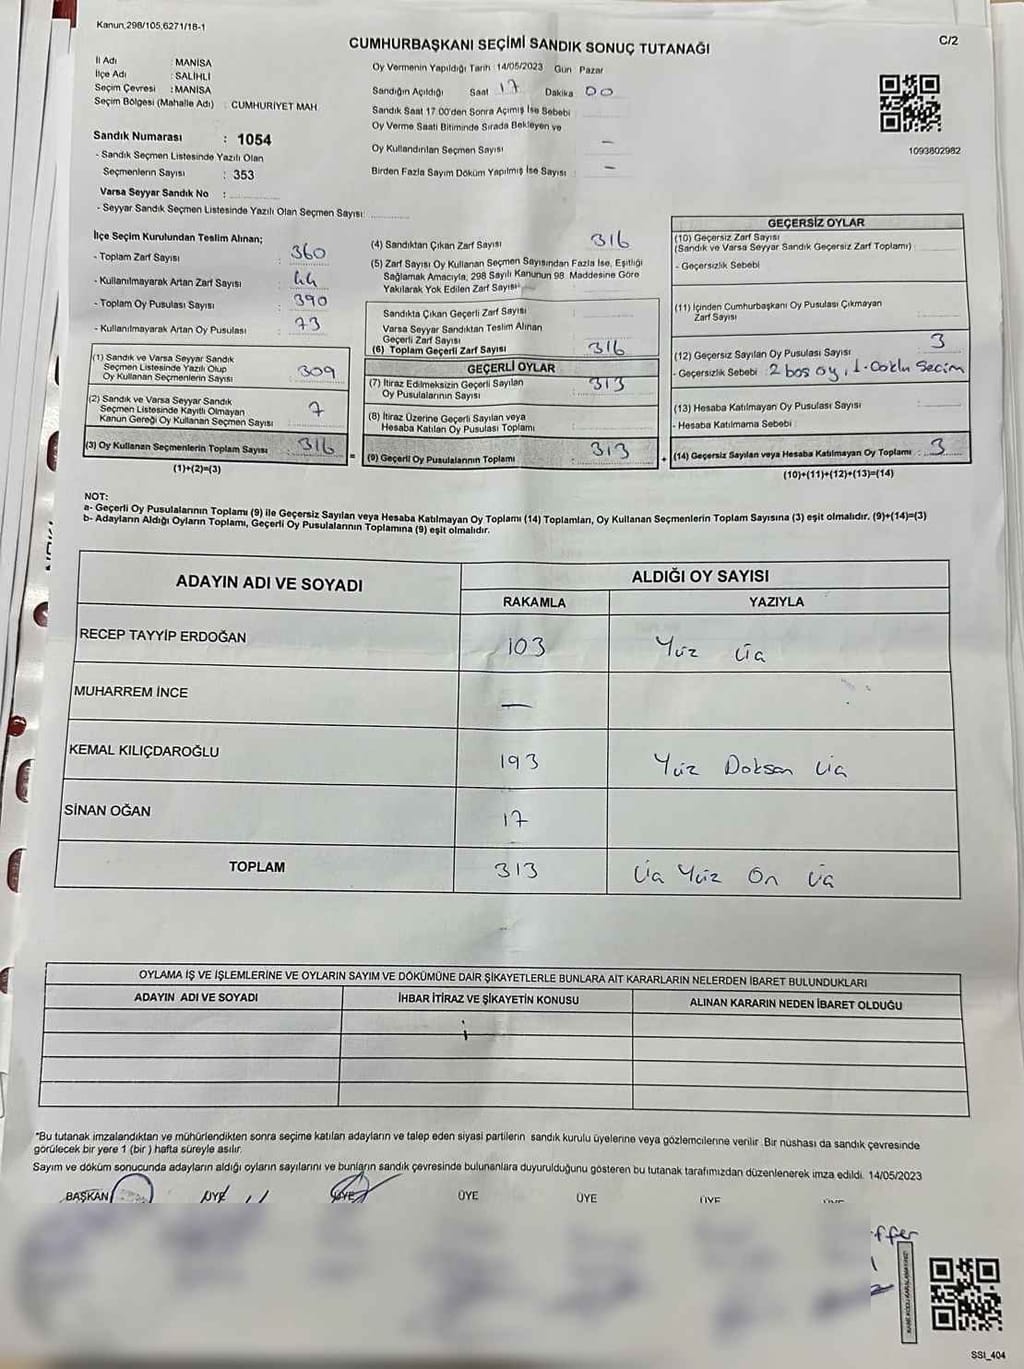 Kanun,298/105,6271/18-1
CUMHURBAŞKANI SEÇİMİ SANDIK SONUÇ TUTANAĞI
C/2
İl Adı : MANİSA
İlçe Adı : SALİHLİ
Seçim Çevresi : MANİSA
Seçim Bölgesi (Mahalle Adı) : CUMHURİYET MAH.
Oy Vermenin Yapıldığı Tarih : 14/05/2023 Gün Pazar
Sandığın Açıldığı Saat 17 Dakika 00
Sandık Saat 17 00'den Sonra Açımış İse Sebebi
Oy Verme Saati Bitiminde Sırada Bekleyen ve
Oy Kullandırılan Seçmen Sayısı —
Birden Fazla Sayım Döküm Yapılmış İse Sayısı : —
1093802982
Sandık Numarası : 1054
- Sandık Seçmen Listesinde Yazılı Olan
Seçmenlerin Sayısı : 353
Varsa Seyyar Sandık No :
- Seyyar Sandık Seçmen Listesinde Yazılı Olan Seçmen Sayısı:
İlçe Seçim Kurulundan Teslim Alınan;
- Toplam Zarf Sayısı : 360
- Kullanılmayarak Artan Zarf Sayısı : 44
- Toplam Oy Pusulası Sayısı : 390
- Kullanılmayarak Artan Oy Pusulası : 73
(1) Sandık ve Varsa Seyyar Sandık
Seçmen Listesinde Yazılı Olup
Oy Kullanan Seçmenlerin Sayısı : 309
(2) Sandık ve Varsa Seyyar Sandık
Seçmen Listesinde Kayıtlı Olmayan
Kanun Gereği Oy Kullanan Seçmen Sayısı : 7
(3) Oy Kullanan Seçmenlerin Toplam Sayısı : 316
(1)+(2)=(3)
(4) Sandıktan Çıkan Zarf Sayısı 316
(5) Zarf Sayısı Oy Kullanan Seçmen Sayısından Fazla İse, Eşitliği
Sağlamak Amacıyla, 298 Sayılı Kanunun 98. Maddesine Göre
Yakılarak Yok Edilen Zarf Sayısı
Sandıkta Çıkan Geçerli Zarf Sayısı
Varsa Seyyar Sandıktan Teslim Alınan
Geçerli Zarf Sayısı
(6) Toplam Geçerli Zarf Sayısı 316
GEÇERLİ OYLAR
(7) İtiraz Edilmeksizin Geçerli Sayılan
Oy Pusulalarının Sayısı 313
(8) İtiraz Üzerine Geçerli Sayılan veya
Hesaba Katılan Oy Pusulası Toplamı
(9) Geçerli Oy Pusulalarının Toplamı : 313
=
+
GEÇERSİZ OYLAR
(10) Geçersiz Zarf Sayısı
(Sandık ve Varsa Seyyar Sandık Geçersiz Zarf Toplamı)
- Geçersizlik Sebebi
(11) İçinden Cumhurbaşkanı Oy Pusulası Çıkmayan
Zarf Sayısı
(12) Geçersiz Sayılan Oy Pusulası Sayısı 3
- Geçersizlik Sebebi : 2 boş oy, 1-Çoklu Seçim
(13) Hesaba Katılmayan Oy Pusulası Sayısı
- Hesaba Katılmama Sebebi
(14) Geçersiz Sayılan veya Hesaba Katılmayan Oy Toplamı : 3
(10)+(11)+(12)+(13)=(14)
NOT:
a- Geçerli Oy Pusulalarının Toplamı (9) ile Geçersiz Sayılan veya Hesaba Katılmayan Oy Toplamı (14) Toplamları, Oy Kullanan Seçmenlerin Toplam Sayısına (3) eşit olmalıdır. (9)+(14)=(3)
b- Adayların Aldığı Oyların Toplamı, Geçerli Oy Pusulalarının Toplamına (9) eşit olmalıdır.
ADAYIN ADI VE SOYADI
ALDIĞI OY SAYISI
RAKAMLA YAZIYLA
RECEP TAYYİP ERDOĞAN 103 Yüz Üç
MUHARREM İNCE —
KEMAL KILIÇDAROĞLU 193 Yüz Doksan Üç
SİNAN OĞAN 17
TOPLAM 313 Üç Yüz On Üç
OYLAMA İŞ VE İŞLEMLERİNE VE OYLARIN SAYIM VE DÖKÜMÜNE DAİR ŞİKAYETLERLE BUNLARA AİT KARARLARIN NELERDEN İBARET BULUNDUKLARI
ADAYIN ADI VE SOYADI İHBAR İTİRAZ VE ŞİKAYETİN KONUSU ALINAN KARARIN NEDEN İBARET OLDUĞU
"Bu tutanak imzalandıktan ve mühürlendikten sonra seçime katılan adayların ve talep eden siyasi partilerin sandık kurulu üyelerine veya gözlemcilerine verilir. Bir nüshası da sandık çevresinde
görülecek bir yere 1 (bir) hafta süreyle asılır.
Sayım ve döküm sonucunda adayların aldığı oyların sayılarını ve bunların sandık çevresinde bulunanlara duyurulduğunu gösteren bu tutanak tarafımızdan düzenlenerek imza edildi. 14/05/2023
BAŞKAN ÜYE ÜYE ÜYE ÜYE ÜYE
SSI_404